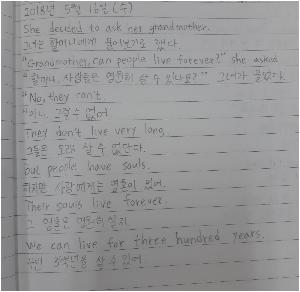 2018년 5월 16일 (수)
She decided to ask her grandmother.
그녀는 할머니에게 물어보기로 했다.
"Grandmother, can people live forever?" she asked
"할머니, 사람들은 영원히 살 수 있나요?" 그녀가 물었다.
"No, they can't.
"아니, 그럴 수 없어
They don't live very long.
그들은 오래 살 수 없단다.
but people have souls.
하지만 사람에게는 영혼이 있어.
Their souls live forever.
그 영혼은 영원히 살지
We can live for three hundred years.
우린 3백년을 살 수 있어